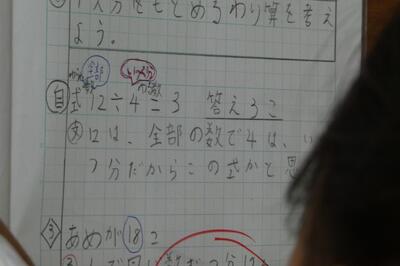 1人分をもとめるわり算を考え
よう。
全部
の数 いくつ分
自 式 12÷4=3 答え3こ
文 12は、全部の数で4は、い
つ分だからこの式かと思
③ あめが18こ